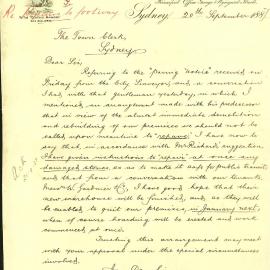 Principal Office George & Margaret Street
Re to footway
Sydney, 20th September 1889
The Town Clerk,
Sydney
Dear Sir,
Referring to the "paving" notice received on
Friday from the City Surveyor, and a conversation
I had with that gentleman yesterday, in which I
mentioned an arrangement made with his predecessor
that in view of the almost immediate demolition
and rebuilding of our premises we should not be
called upon meantime to "repave" I have now to
say that, in accordance with Mr Richards' suggestion,
I have given instructions to repair at once any
damaged stones, so as to make it safe for public transit,
and that from a conversation with our tenants,
Messrs W. Gardner & Co, I have good hope that their
new warehouse will be finished, and, as they will
be enabled to quit our premises, in January next,
when of course hoarding will be erected and work
commenced at once.
Trusting this arrangement may meet
with your approval under the special circumstances
involved,